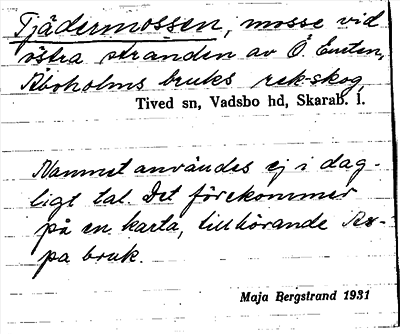 Tjädermossen, mosse vid
östra stranden av Ö. Enten,
Åboholms bruks rekskog,
Tived sn, Vadsbo hd, Skarab. l.
Namnet användes ej i dag-
ligt tal. Det förekommer
på en karta, tillhörande As-
pa bruk.
Maja Bergstrand 1931